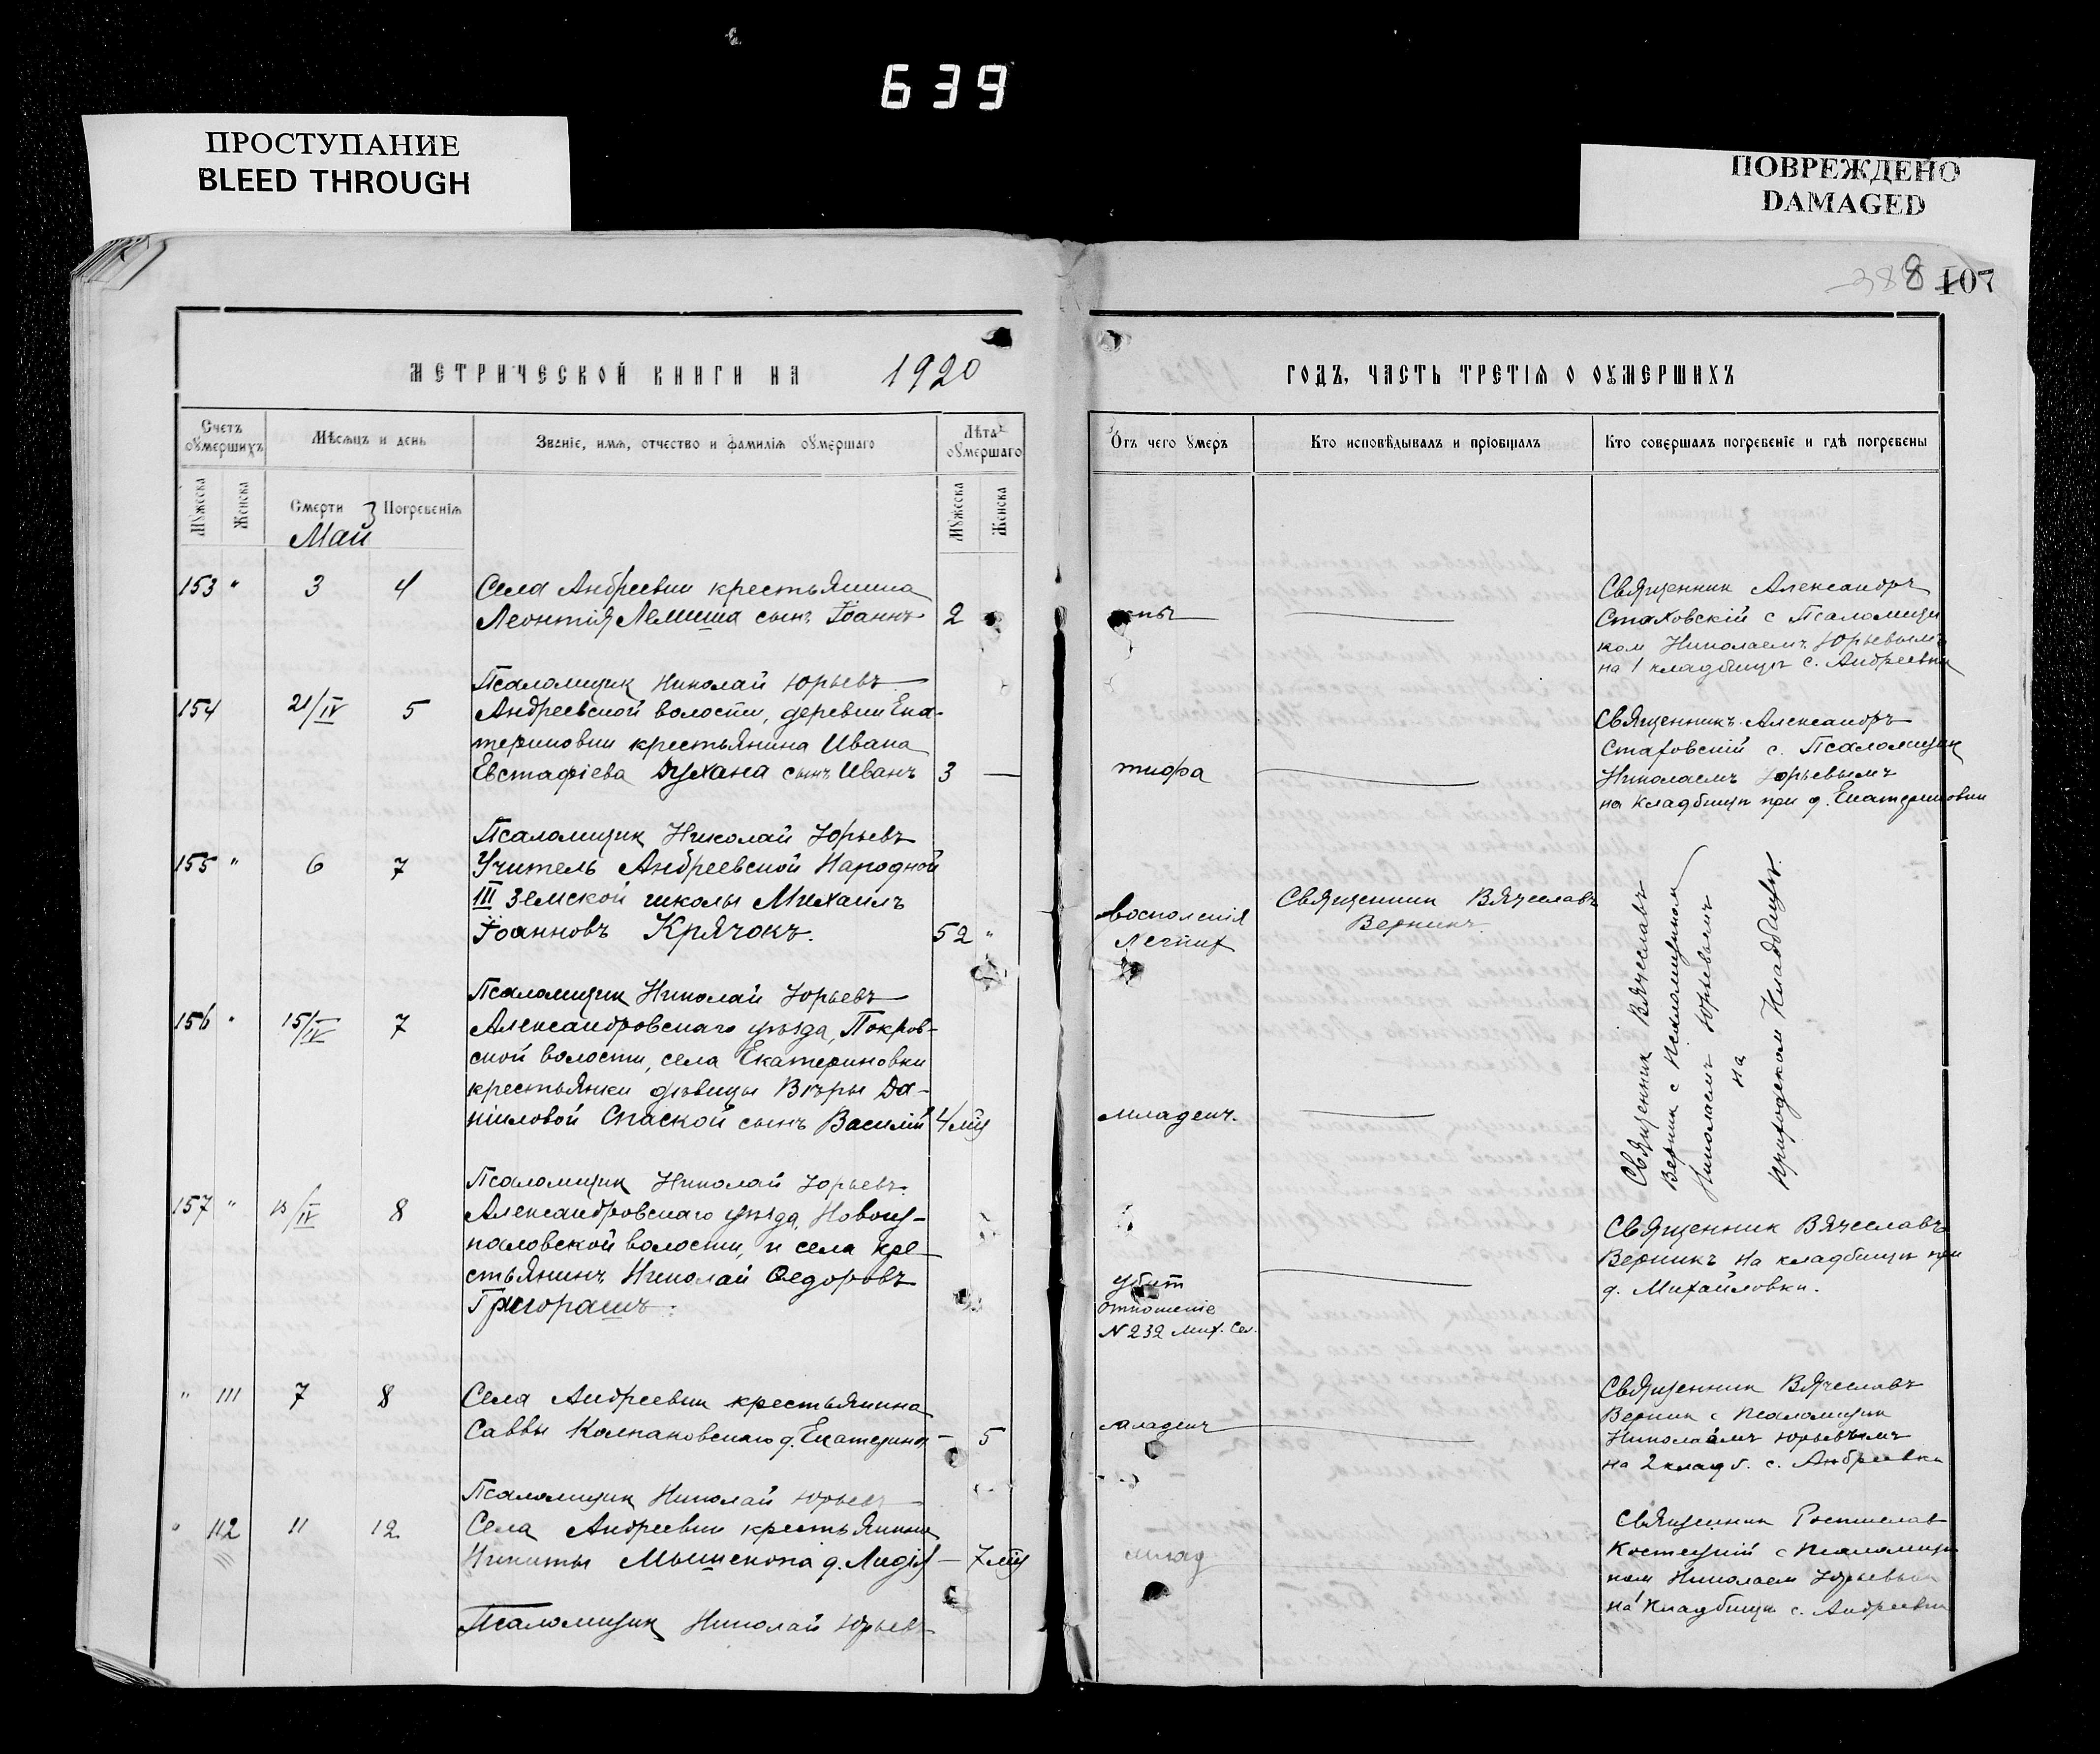 639
ПРОСТУПАНИЕ
BLEED THROUGH
ПОВРЕЖДЕНО
DAMAGED
388 107
МЕТРИЧЕСКОЙ КНИГИ НА 1920
ГОДЪ, ЧАСТЬ ТРЕТІѦ О ОУМЕРШИХЪ
Счетъ оумершихъ
Мѣсяцъ и день
Званіе, имя, отчество и фамилія оумершаго
Лѣта оумершаго
Отъ чего умеръ
Кто исповѣдывалъ и пріобщалъ
Кто совершалъ погребеніе и гдѣ погребены
Мужеска
Женска
Смерти
Погребенія
Мужеска
Женска
Май
153 " 3 4
Села Андреевки крестьянина
Леонтія Лемиша сынъ Іоаннъ 2
Священник Александръ
Стаховскій с Псаломщи
ком Николаемъ Юрьевымъ
на 1 кладбищѣ с. Андреевки
Псаломщик Николай Юрьевъ
154 21/IV 5
Андреевской волости, деревни Ека-
териновки крестьянина Ивана
Евстафіева Духана сынъ Иванъ 3 —
тифа
Священникъ Александръ
Стаховскій с. Псаломщик
Николаемъ Юрьевымъ
на кладбищѣ при д. Екатериновки
Псаломщик Николай Юрьевъ
155 " 6 7
Учитель Андреевской Народной
III Земской школы Михаилъ
Іоанновъ Крячокъ. 52 "
воспаленія
Легких
Священник Вячеславъ
Верникъ.
Священник Вячеславъ
Верник с Псаломщиком
Николаемъ Юрьевымъ
на
приходском Кладбищѣ.
Псаломщик Николай Юрьевъ
156 " 15/IV 7
Александровскаго уѣзда, Покров-
ской волости, села Екатериновки
крестьянки дѣвицы Вѣры Да-
ниловой Спаской сынъ Василій 4 мѣц
младенч.
Псаломщик Николай Юрьевъ.
157 " /IV 8
Александровскаго уѣзда, Новоуч-
паловской волости, и села кре-
стьянинъ Николай Ѳедоровъ
Григорашъ.
убит
отношение
N 232 Мих. Сел.
Священник Вячеславъ
Верникъ на кладбищѣ при
д. Михайловки.
" 111 7 8
Села Андреевки крестьянина
Саввы Колпаковскаго д. Екатерина — 5
младенч
Священник Вячеславъ
Верник с Псаломщик
Николаемъ Юрьевымъ
на 2 кладб. с. Андреевки
Псаломщик Николай Юрьевъ
" 112 11 12
Села Андреевки крестьянина
Никиты д. Лидія — 7 мѣц
млад
Священник Ростислав
Костецкій с Псаломщи
ком Николаем Юрьевым
на 1 кладбищѣ с. Андреевки
Псаломщик Николай Юрьевъ